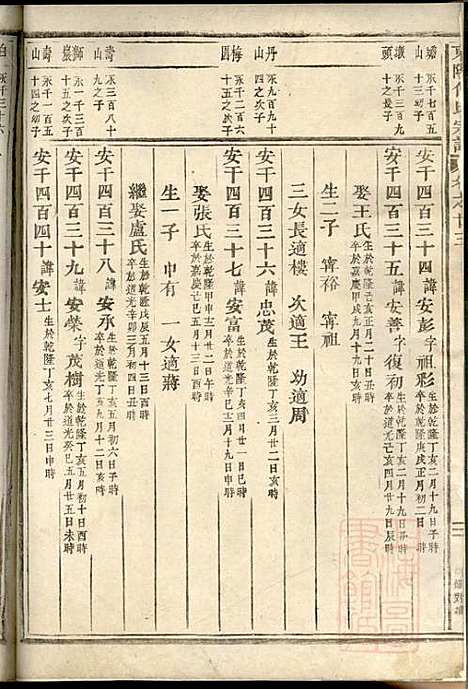 瀚山 永千七百五十三幼子
墩頭 永千二百十之長子
丹山 永九百九十九之次子
梅山 永千二百六十五之次子
壽山 永三百八十九之子
獅巖 永一千三百五十之次子
壽山 永千一百五十四之子
安千四百三十四 諱安彭 字祖彤 生於乾隆丁亥二月十九日子時 卒於乾隆庚戌正月初二日
安千四百三十五 諱安善 字復初 生於乾隆丁亥二月十九日子時 卒於道光己亥四月廿九日辰時
娶王氏 生於乾隆己亥正月二十日丑時 卒於嘉慶甲戌九月十九日
生二子 甯裕 甯祖
三女長適樓 次適王 幼適周
安千四百三十六 諱忠茂 生於乾隆丁亥三月廿二日亥時
安千四百三十七 諱安富 生於乾隆丁亥四月廿一日巳時 卒於道光辛巳十月廿一日申時
娶張氏 生於乾隆甲申十二月廿二日午時 卒於嘉慶己巳五月十三日酉時
生一子 中有 一女適蔣
繼娶盧氏 生於乾隆戊辰五月十三日酉時 卒於道光辛卯三月初三日卯時
安千四百三十八 諱安承 生於乾隆丁亥五月初六日子時 卒於道光丁亥九月十二日亥時
安千四百三十九 諱安榮 字茂樹 生於乾隆丁亥五月初十日亥時 卒於道光癸巳五月廿五日未時
安千四百四十 諱安士 生於乾隆丁亥七月廿三日申時